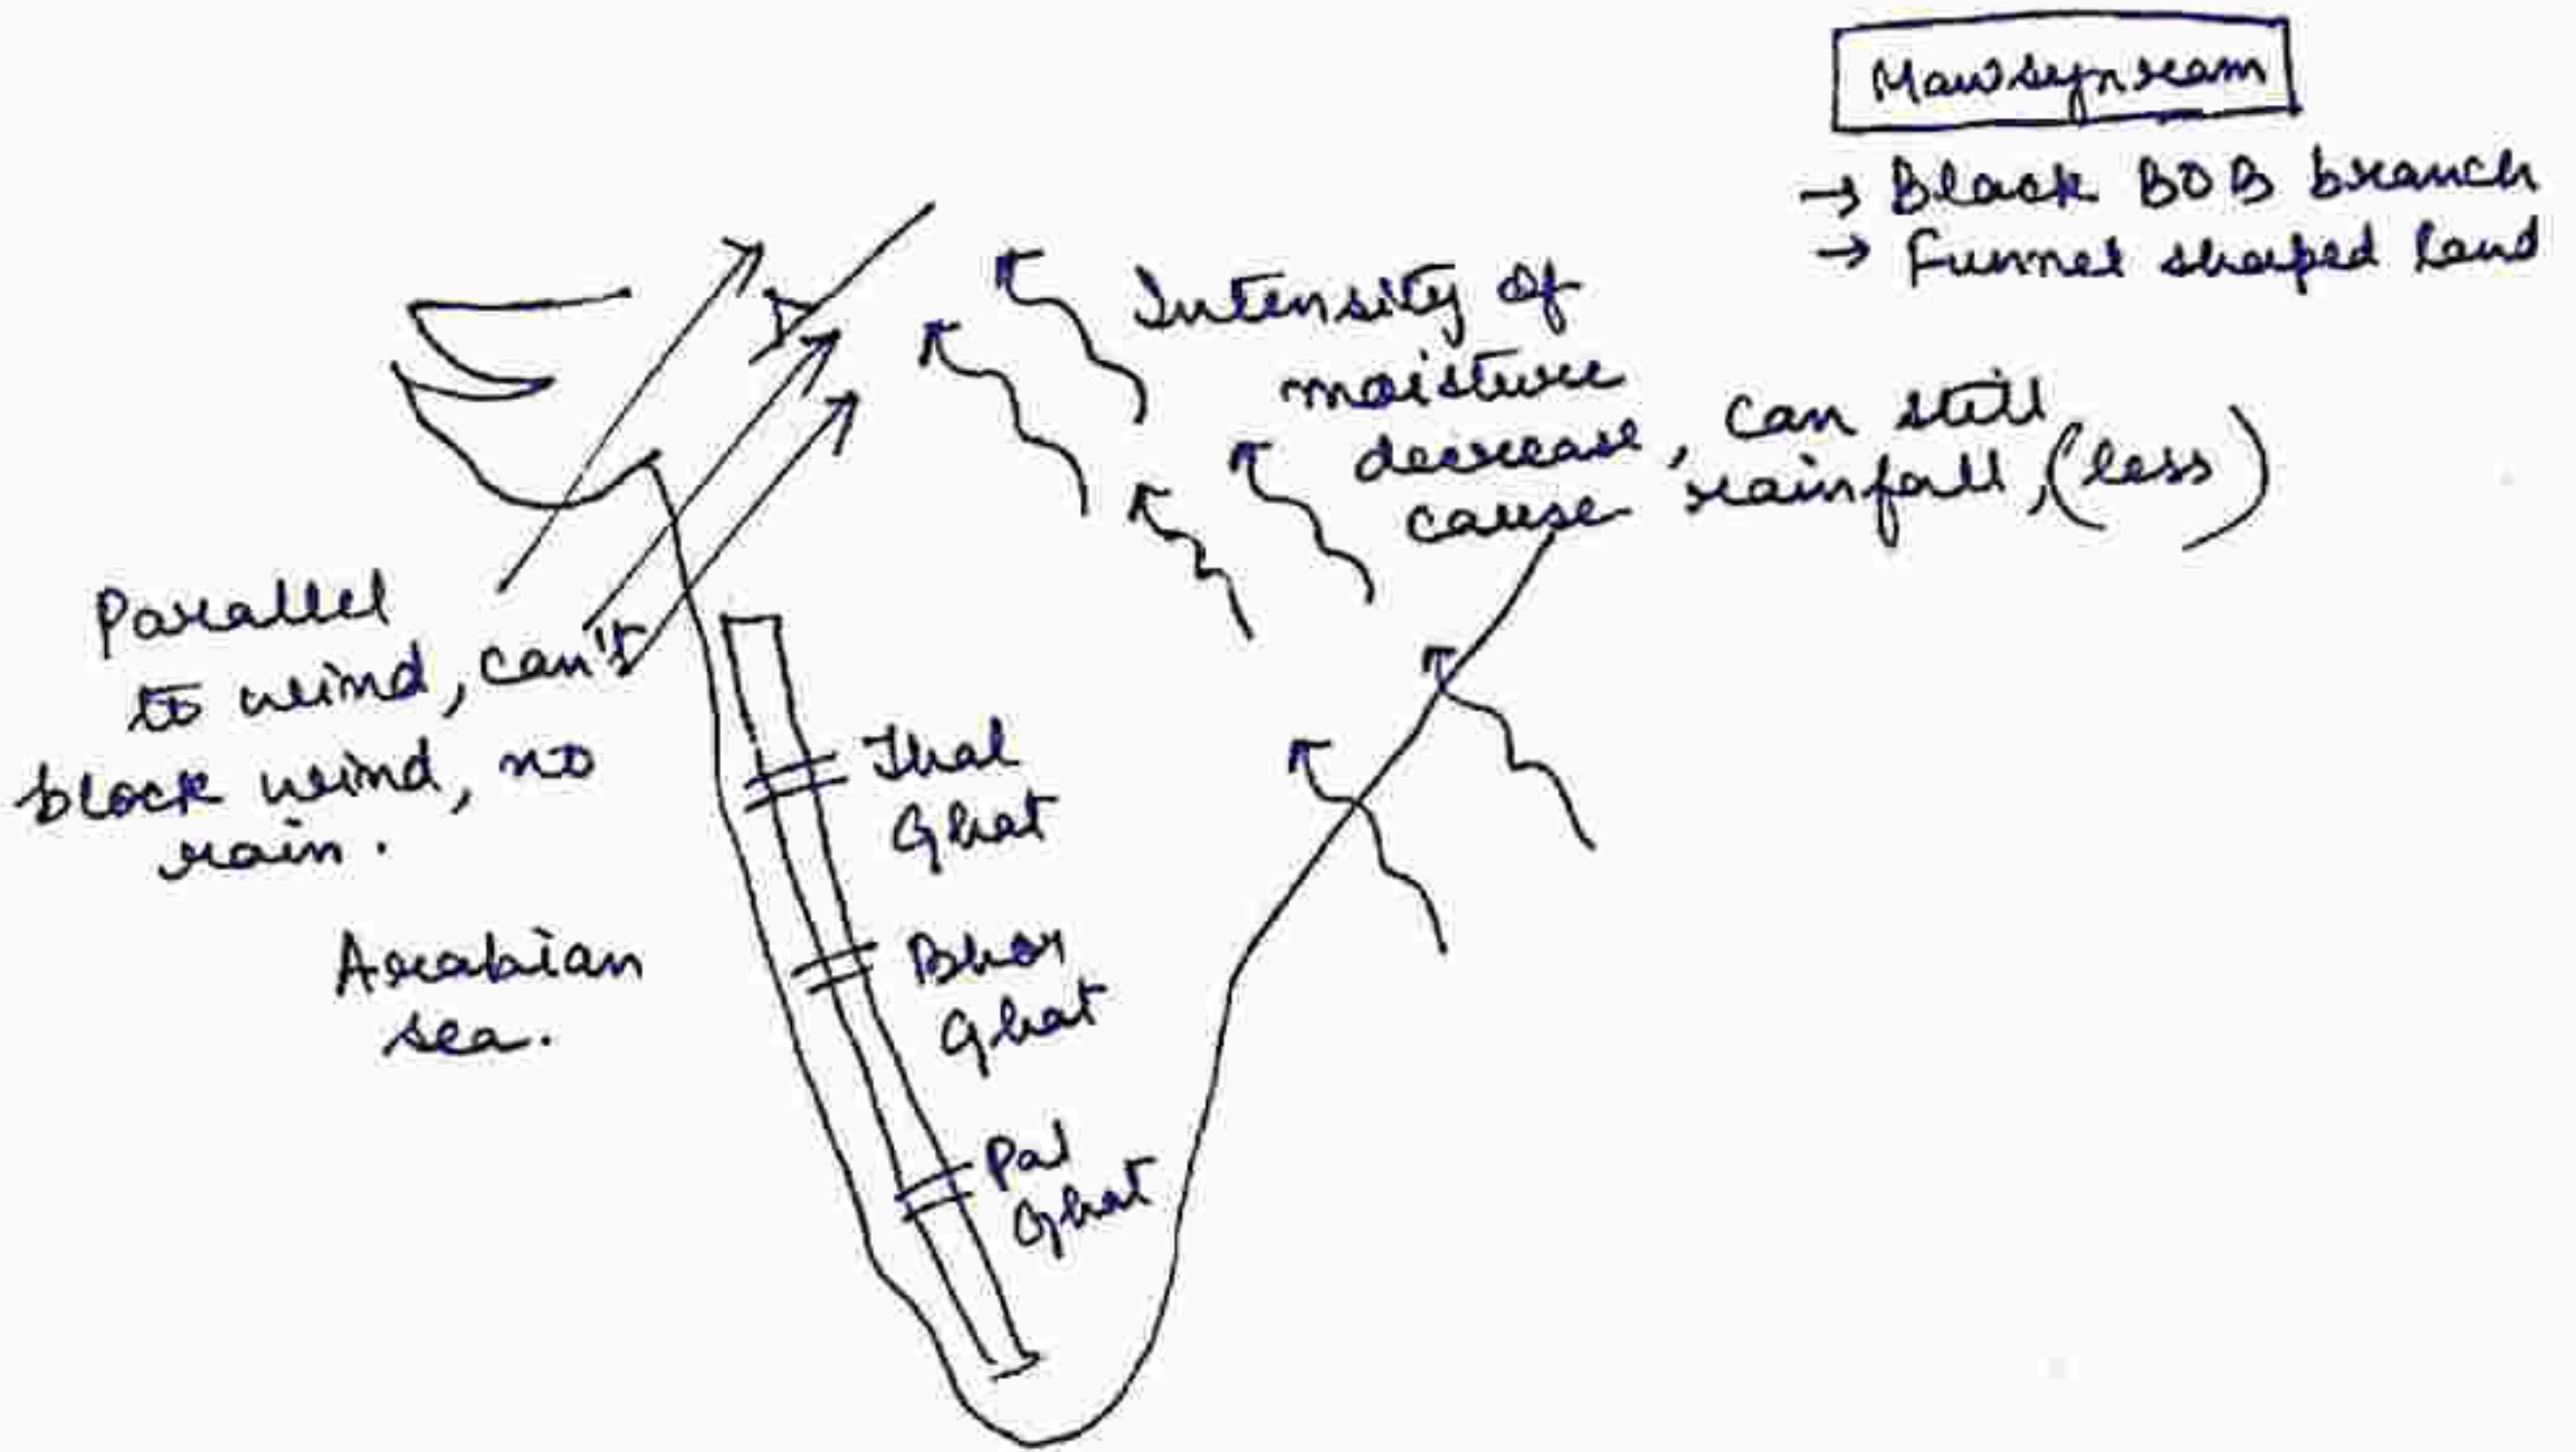 Mawsynram
→ Black BOB branch
→ Funnel shaped land
Intensity of
moisture
decrease, can still
cause rainfall, (less)
Parallel
to wind, can't
block wind, no
rain.
Arabian
sea.
Thal
Ghat
Bhor
Ghat
Pal
Ghat